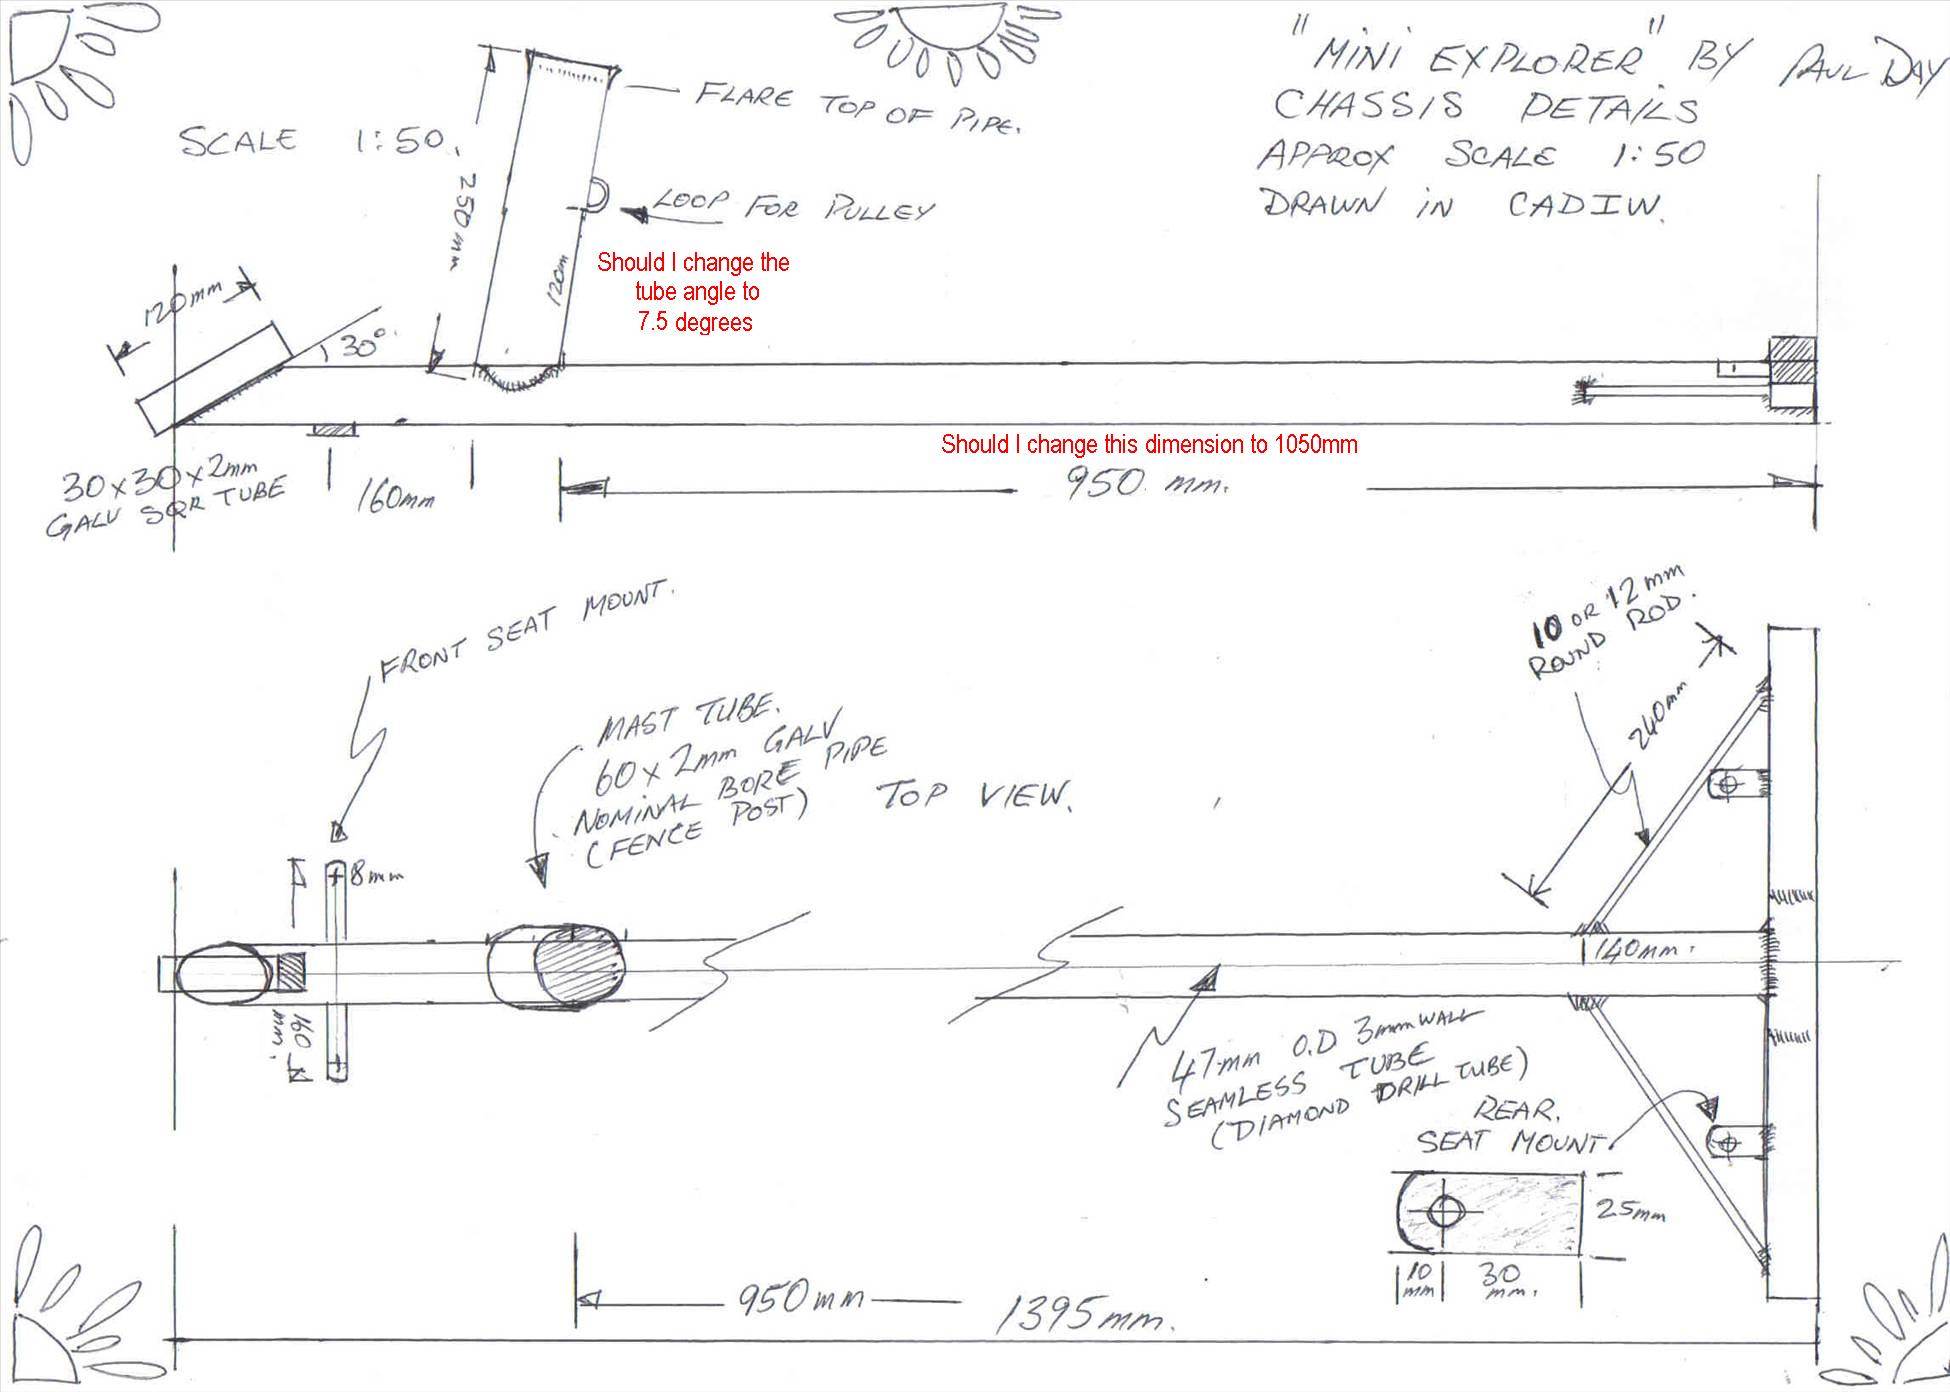 "MINI EXPLORER" BY PAUL DAY
CHASSIS DETAILS
APPROX SCALE 1:50
DRAWN IN CADIW.
SCALE 1:50.
FLARE TOP OF PIPE.
250mm
LOOP FOR PULLEY
12cm
Should I change the
tube angle to
7.5 degrees
120mm
30°
Should I change this dimension to 1050mm
30x30x2mm
GALV SQR TUBE
160mm
950 mm.
FRONT SEAT MOUNT.
10 OR 12mm
ROUND ROD.
240mm
MAST TUBE.
60x2mm GALV
NOMINAL BORE PIPE
(FENCE POST)
TOP VIEW.
8mm
160
mm.
140mm.
47mm O.D 3mm WALL
SEAMLESS TUBE
(DIAMOND DRILL TUBE)
REAR.
SEAT MOUNT.
25mm
10
mm
30
mm.
950mm
1395mm.